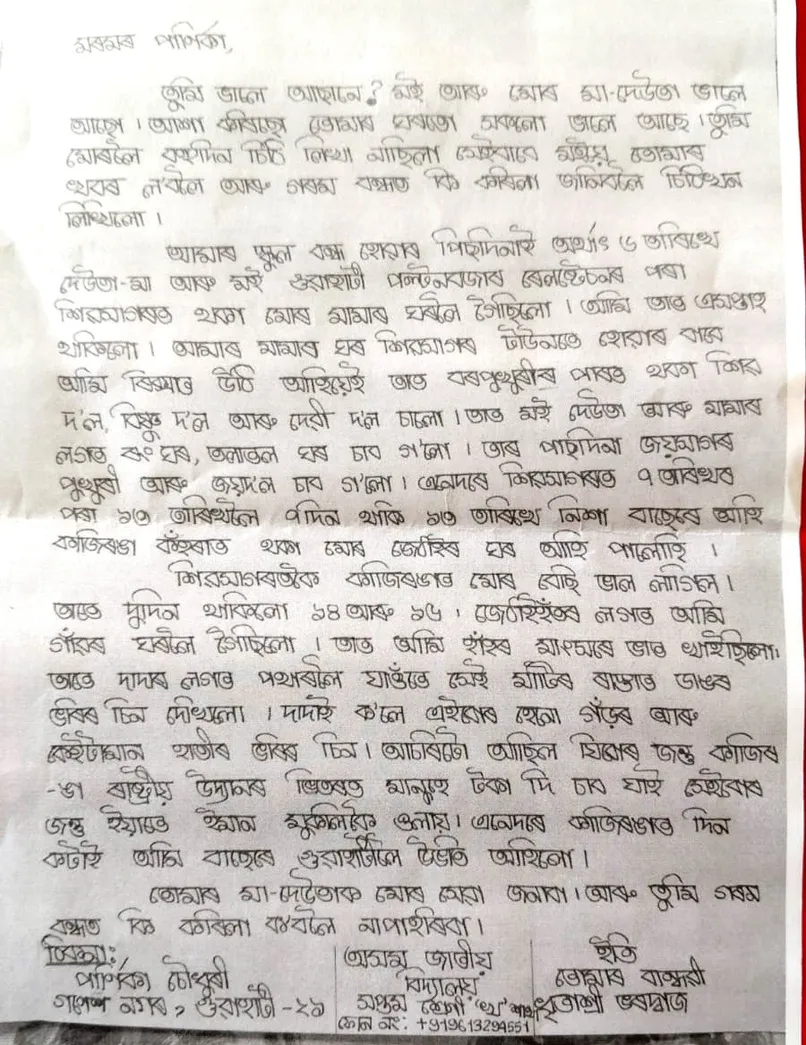 মৰমৰ পাৰ্ণিকা,
তুমি ভালে আছানে? মই আৰু মোৰ মা-দেউতা ভালে
আছো। আশা কৰিছো তোমাৰ ঘৰতো সকলো ভালে আছে। তুমি
মোৰলৈ বহুদিন চিঠি লিখা নাছিলা সেইবাবে ময়েই তোমাৰ
খবৰ ল'বলৈ আৰু গৰম বন্ধত কি কৰিলা জানিবলৈ চিঠিখন
লিখিলো।
আমাৰ স্কুল বন্ধ হোৱাৰ পিছদিনাই অৰ্থাৎ ৬ তাৰিখে
দেউতা-মা আৰু মই গুৱাহাটী পল্টনবজাৰ ৰেলষ্টেচনৰ পৰা
শিৱসাগৰত থকা মোৰ মামাৰ ঘৰলৈ গৈছিলো। আমি তাত এসপ্তাহ
থাকিলো। আমাৰ মামাৰ ঘৰ শিৱসাগৰ টাউনতে হোৱাৰ বাবে
আমি ৰিক্সাত উঠি আহিয়েই তাত বৰপুখুৰীৰ পাৰত থকা শিৱ
দ'ল, বিষ্ণু দ'ল আৰু দেৱী দ'ল চালো। তাত মই দেউতা আৰু মামাৰ
লগত ৰংঘৰ, তলাতল ঘৰ চাব গ'লো। তাৰ পাছদিনা জয়সাগৰ
পুখুৰী আৰু জয়দ'ল চাব গ'লো। এনেদৰে শিৱসাগৰত ৭ তাৰিখৰ
পৰা ১৩ তাৰিখলৈ ৭দিন থাকি ১৩ তাৰিখে নিশা বাছেৰে আহি
কাজিৰঙা কঁহৰাত থকা মোৰ জেঠাইৰ ঘৰ আহি পালোহি।
শিৱসাগৰতকৈ কাজিৰঙাত মোৰ বেছি ভাল লাগিল।
তাতে দুদিন থাকিলো ১৪ আৰু ১৫। জেঠাইহঁতৰ লগত আমি
গাঁৱৰ ঘৰলৈ গৈছিলো। তাত আমি হাঁহৰ মাংসৰে ভাত খাইছিলো।
তাতে দাদাৰ লগত পথাৰলৈ যাওঁতে সেই মাটিৰ ৰাস্তাত ডাঙৰ
ভৰিৰ চিন দেখিলো। দাদাই ক'লে এইবোৰ হেনো গঁড়ৰ আৰু
কেইটামান হাতীৰ ভৰিৰ চিন। আচৰিটো আছিল যিবোৰ জন্তু কাজিৰ
-ঙা ৰাষ্ট্ৰীয় উদ্যানৰ ভিতৰত মানুহে টকা দি চাব যাই সেইবোৰ
জন্তু ইয়াতে ইমান মুকলিকৈ ওলায়। এনেদৰে কাজিৰঙাত দিন
কটাই আমি বাছেৰে গুৱাহাটীলৈ উভতি আহিলো।
তোমাৰ মা-দেউতাক মোৰ সেৱা জনাবা। আৰু তুমি গৰম
বন্ধত কি কৰিলা ক'বলৈ নাপাহৰিবা।
ঠিকনা:
পাৰ্ণিকা চৌধুৰী
গণেশ নগৰ, গুৱাহাটী -২৯
অসম জাতীয়
বিদ্যালয়
সপ্তম শ্ৰেণী 'খ' শাখা
ফোন নং: +919613294551
ইতি
তোমাৰ বান্ধৱী
ধৃতাশ্ৰী ভৰদ্বাজ